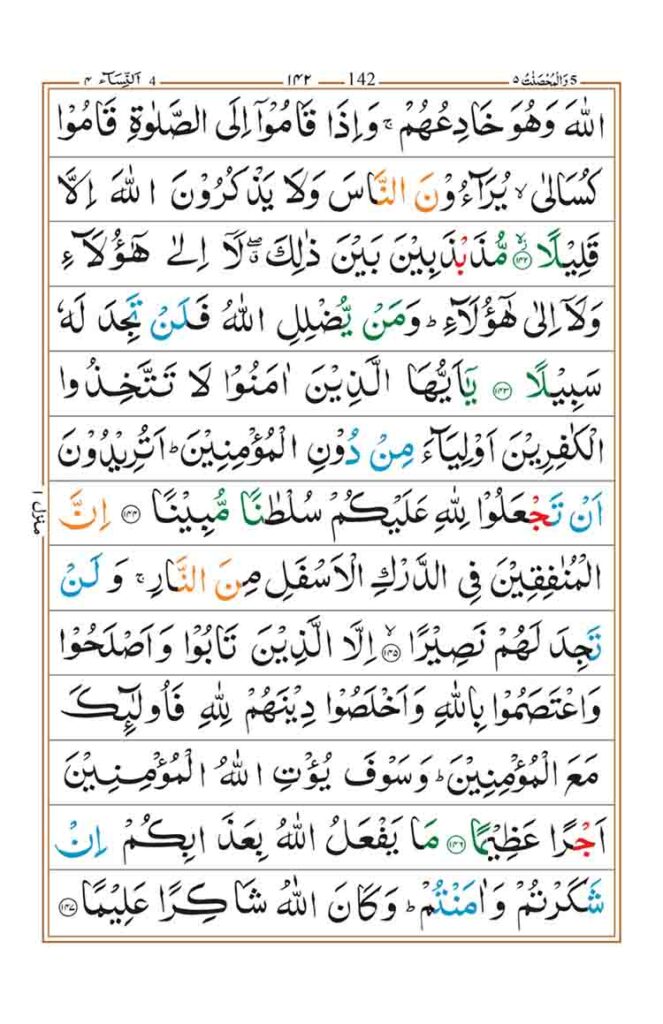 5 وَالْمُحْصَنٰتُ ۵ 142 ۱۴۲ 4 اَلنِّسَآء ۴
اللّٰهَ وَهُوَ خَادِعُهُمْ ۚ وَاِذَا قَامُوْۤا اِلَى الصَّلٰوةِ قَامُوْا
كُسَالٰى ۙ يُرَآءُوْنَ النَّاسَ وَلَا يَذْكُرُوْنَ اللّٰهَ اِلَّا
قَلِيْلًا ۙ‏﴿۱۴۲﴾ مُّذَبْذَبِيْنَ بَيْنَ ذٰلِكَ ۖ ۗ لَاۤ اِلٰى هٰٓؤُلَآءِ
وَلَاۤ اِلٰى هٰٓؤُلَآءِ ؕ وَمَنْ يُّضْلِلِ اللّٰهُ فَلَنْ تَجِدَ لَهٗ
سَبِيْلًا ﴿۱۴۳﴾ يٰۤاَيُّهَا الَّذِيْنَ اٰمَنُوْا لَا تَتَّخِذُوا
الْكٰفِرِيْنَ اَوْلِيَآءَ مِنْ دُوْنِ الْمُؤْمِنِيْنَ ؕ اَتُرِيْدُوْنَ
اَنْ تَجْعَلُوْا لِلّٰهِ عَلَيْكُمْ سُلْطٰنًا مُّبِيْنًا ﴿۱۴۴﴾ اِنَّ
الْمُنٰفِقِيْنَ فِى الدَّرْكِ الْاَسْفَلِ مِنَ النَّارِ ۚ وَلَنْ
تَجِدَ لَهُمْ نَصِيْرًا ۙ‏﴿۱۴۵﴾ اِلَّا الَّذِيْنَ تَابُوْا وَاَصْلَحُوْا
وَاعْتَصَمُوْا بِاللّٰهِ وَاَخْلَصُوْا دِيْنَهُمْ لِلّٰهِ فَاُولٰٓئِكَ
مَعَ الْمُؤْمِنِيْنَ ؕ وَسَوْفَ يُؤْتِ اللّٰهُ الْمُؤْمِنِيْنَ
اَجْرًا عَظِيْمًا ﴿۱۴۶﴾ مَا يَفْعَلُ اللّٰهُ بِعَذَابِكُمْ اِنْ
شَكَرْتُمْ وَاٰمَنْتُمْ ؕ وَكَانَ اللّٰهُ شَاكِرًا عَلِيْمًا ﴿۱۴۷﴾
منزل ۱